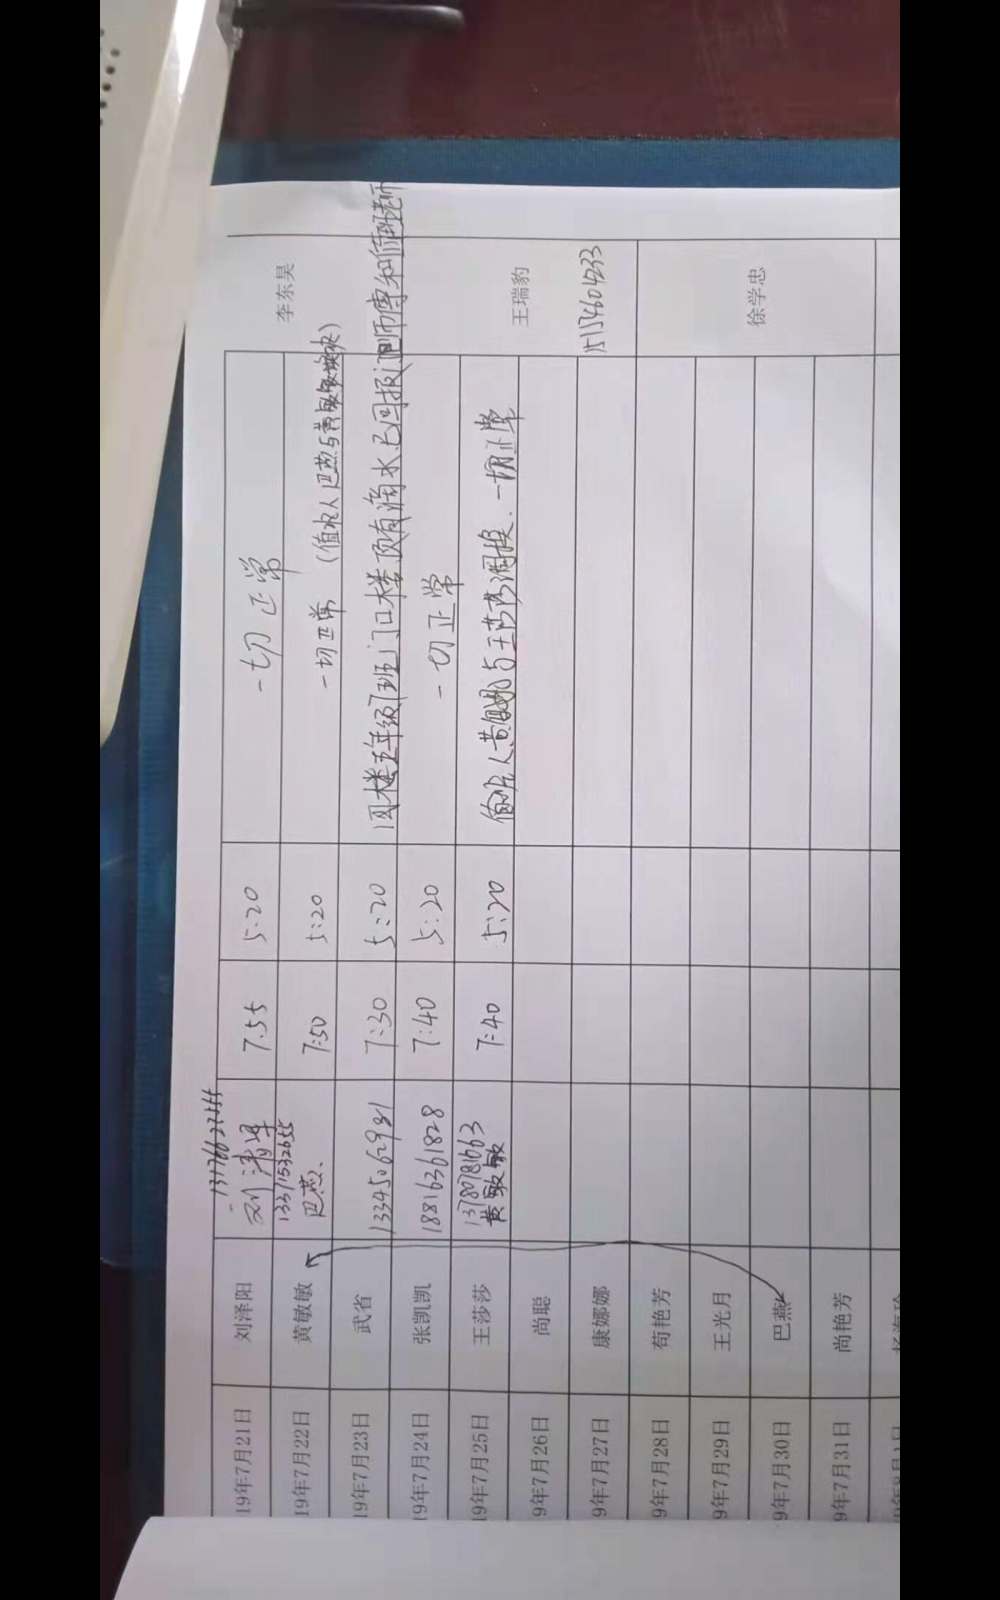 19年7月21日 刘泽阳 13176627555 7.55 5:20 一切正常 李东昊
19年7月22日 黄敏敏 13371532655 巴燕 7:50 5:20 一切正常 (值班人巴燕与黄敏敏
19年7月23日 武省 7:30 5:20 楼五年级 班门口楼顶有滴水 已回报 值班老师
19年7月24日 张凯凯 18816361828 7:40 5:20 一切正常
19年7月25日 王莎莎 13780781663 黄敏敏 7:40 5:20 值班人黄敏敏与王莎莎调换. 一切正常 王瑞豹
9年7月26日 尚聪
9年7月27日 康娜娜 15154604233
9年7月28日 苟艳芳
9年7月29日 王光月 徐学忠
9年7月30日 巴燕
9年7月31日 尚艳芳